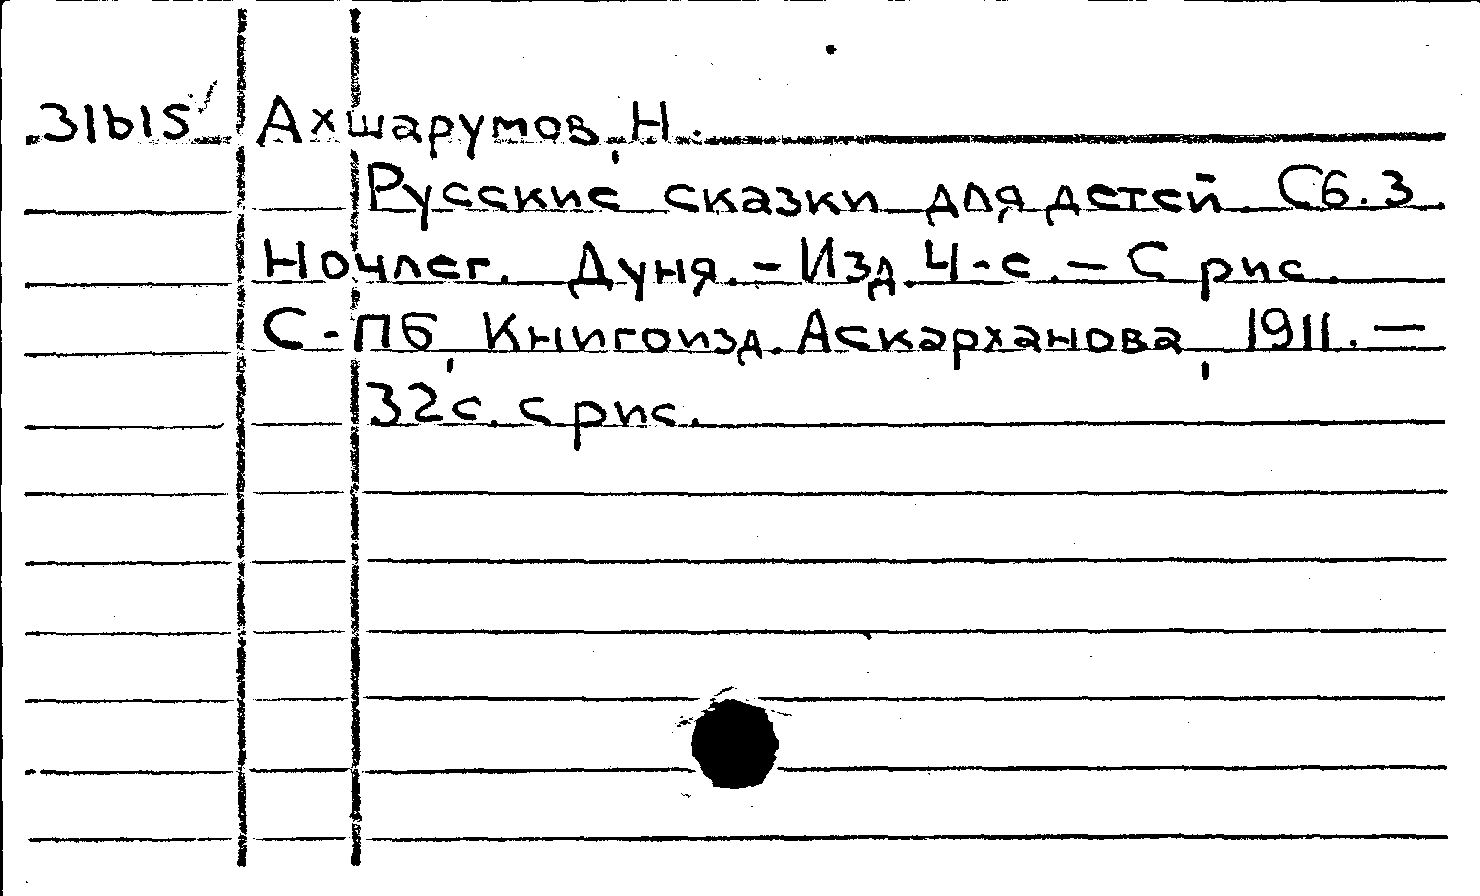 31b15 Ахшарумов, Н.
Русские сказки для детей. Сб. 3
Ночлег. Дуня. - Изд. 4-е. - С рис.
С-Пб, Книгоизд. Аскарханова, 1911. —
32с. с рис.